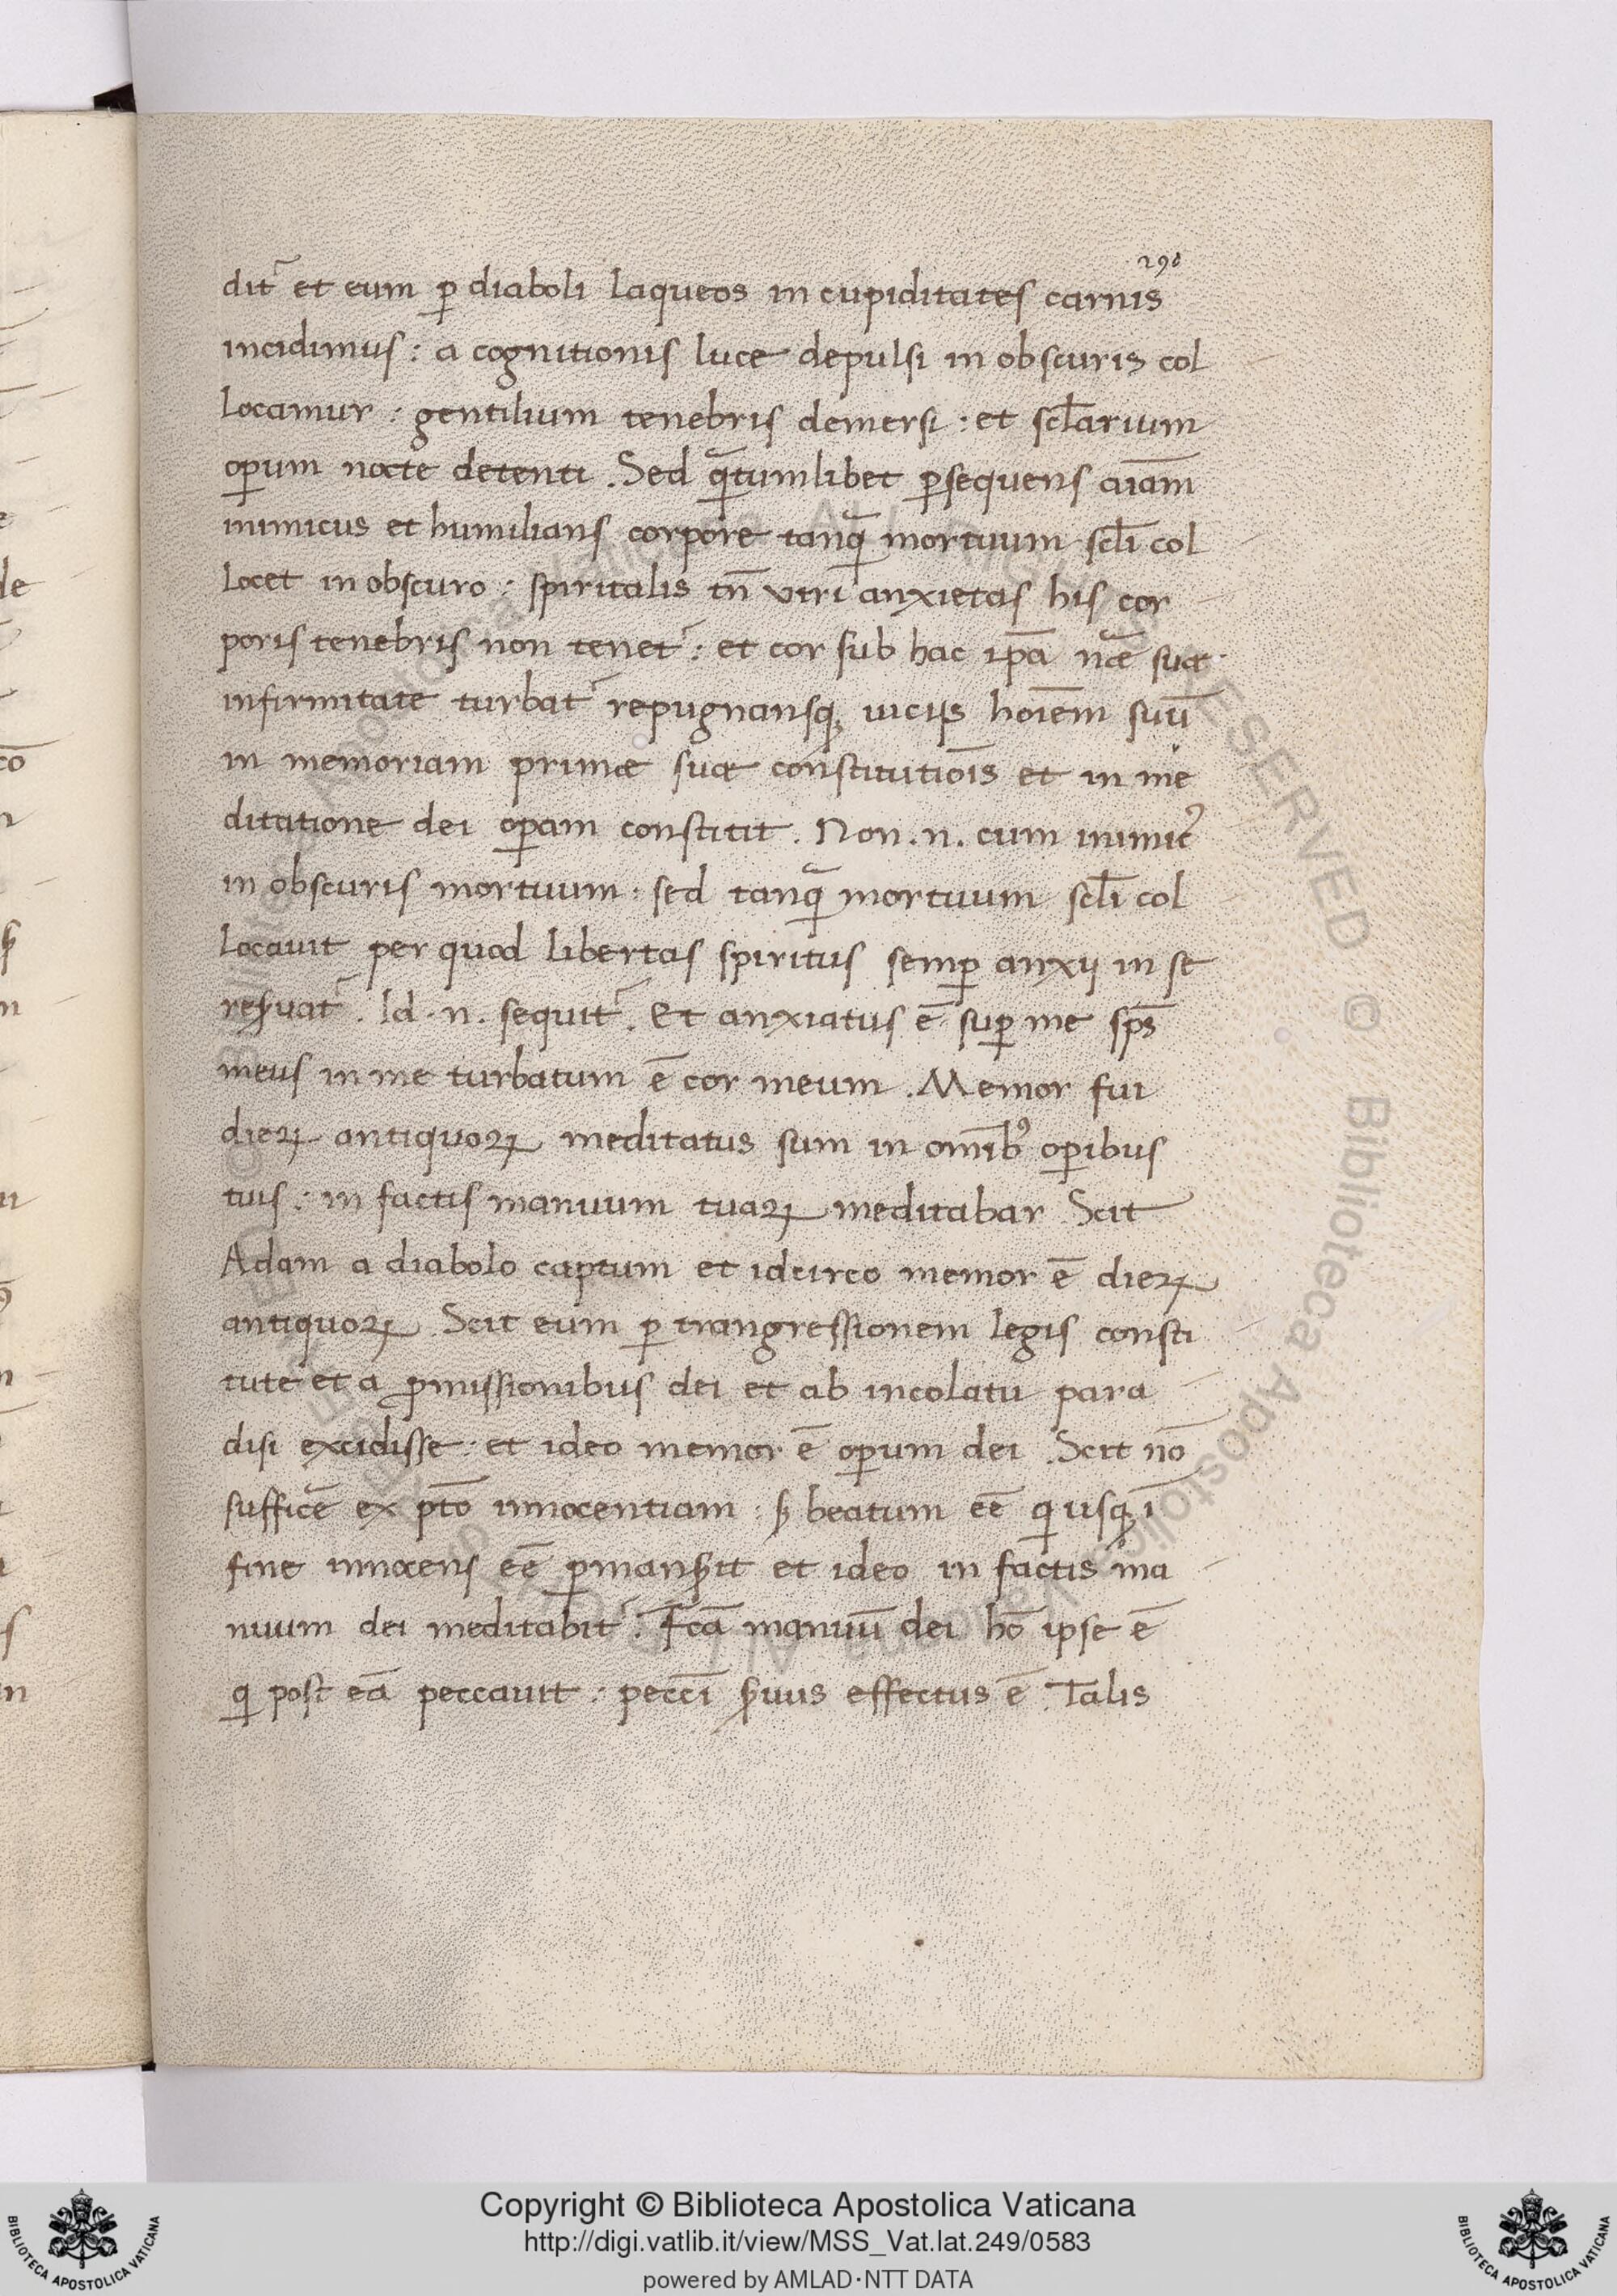 290
dit᷑ et eum ꝑ diaboli laqueos in cupiditates carnis
incidimus : a cognitionis luce depulsi in obscuris col
locamur : gentilium tenebris demersi : et sclarium
oꝑum nocte detenti . Sed qᷓtumlibet ꝑsequens aīam
inimicus et humilians corpore tanqᷓ mortuum scli col
locet in obscuro : spiritalis tn̄ viri anxietas his cor
poris tenebris non tenet᷑ : et cor sub hac ip̄a nāe suæ
infirmitate turbat᷑ repugnansqꝫ uicijs hoīem suū
in memoriam primæ suæ constitutiōis et in me
ditatione dei oꝑam constitit . Non .n. cum inimicꝰ
in obscuris mortuum : sed tanqᷓ mortuum scli col
locauit per quod libertas spiritus semꝑ anxij in se
reẜuat᷑ . Id .n. sequit᷑ . Et anxiatus ē suꝑ me sp̄s
meus in me turbatum ē cor meum . Memor fui
dieꝝ antiquoꝝ meditatus sum in omībꝰ oꝑibus
tuis : in factis manuum tuaꝝ meditabar . Scit
Adam a diabolo captum et idcirco memor ē dieꝝ
antiquoꝝ . Scit eum ꝑ trangressionem legis consti
tute et a ꝓmissionibus dei et ab incolatu para
disi excidisse : et ideo memor ē oꝑum dei . Scit nō
sufficē ex pto innocentiam : ẜ beatum eē qui usqꝫ ī
fine innocens eē ꝑmanẜit et ideo in factis ma
nuum dei meditabit᷑ . Fcā manuū dei hō ipse ē
qi post eā peccauit : peccī ẜuus effectus ē . Talis
Copyright © Biblioteca Apostolica Vaticana
http://digi.vatlib.it/view/MSS_Vat.lat.249/0583
powered by AMLAD·NTT DATA
BIBLIOTECA APOSTOLICA VATICANA
BIBLIOTECA APOSTOLICA VATICANA